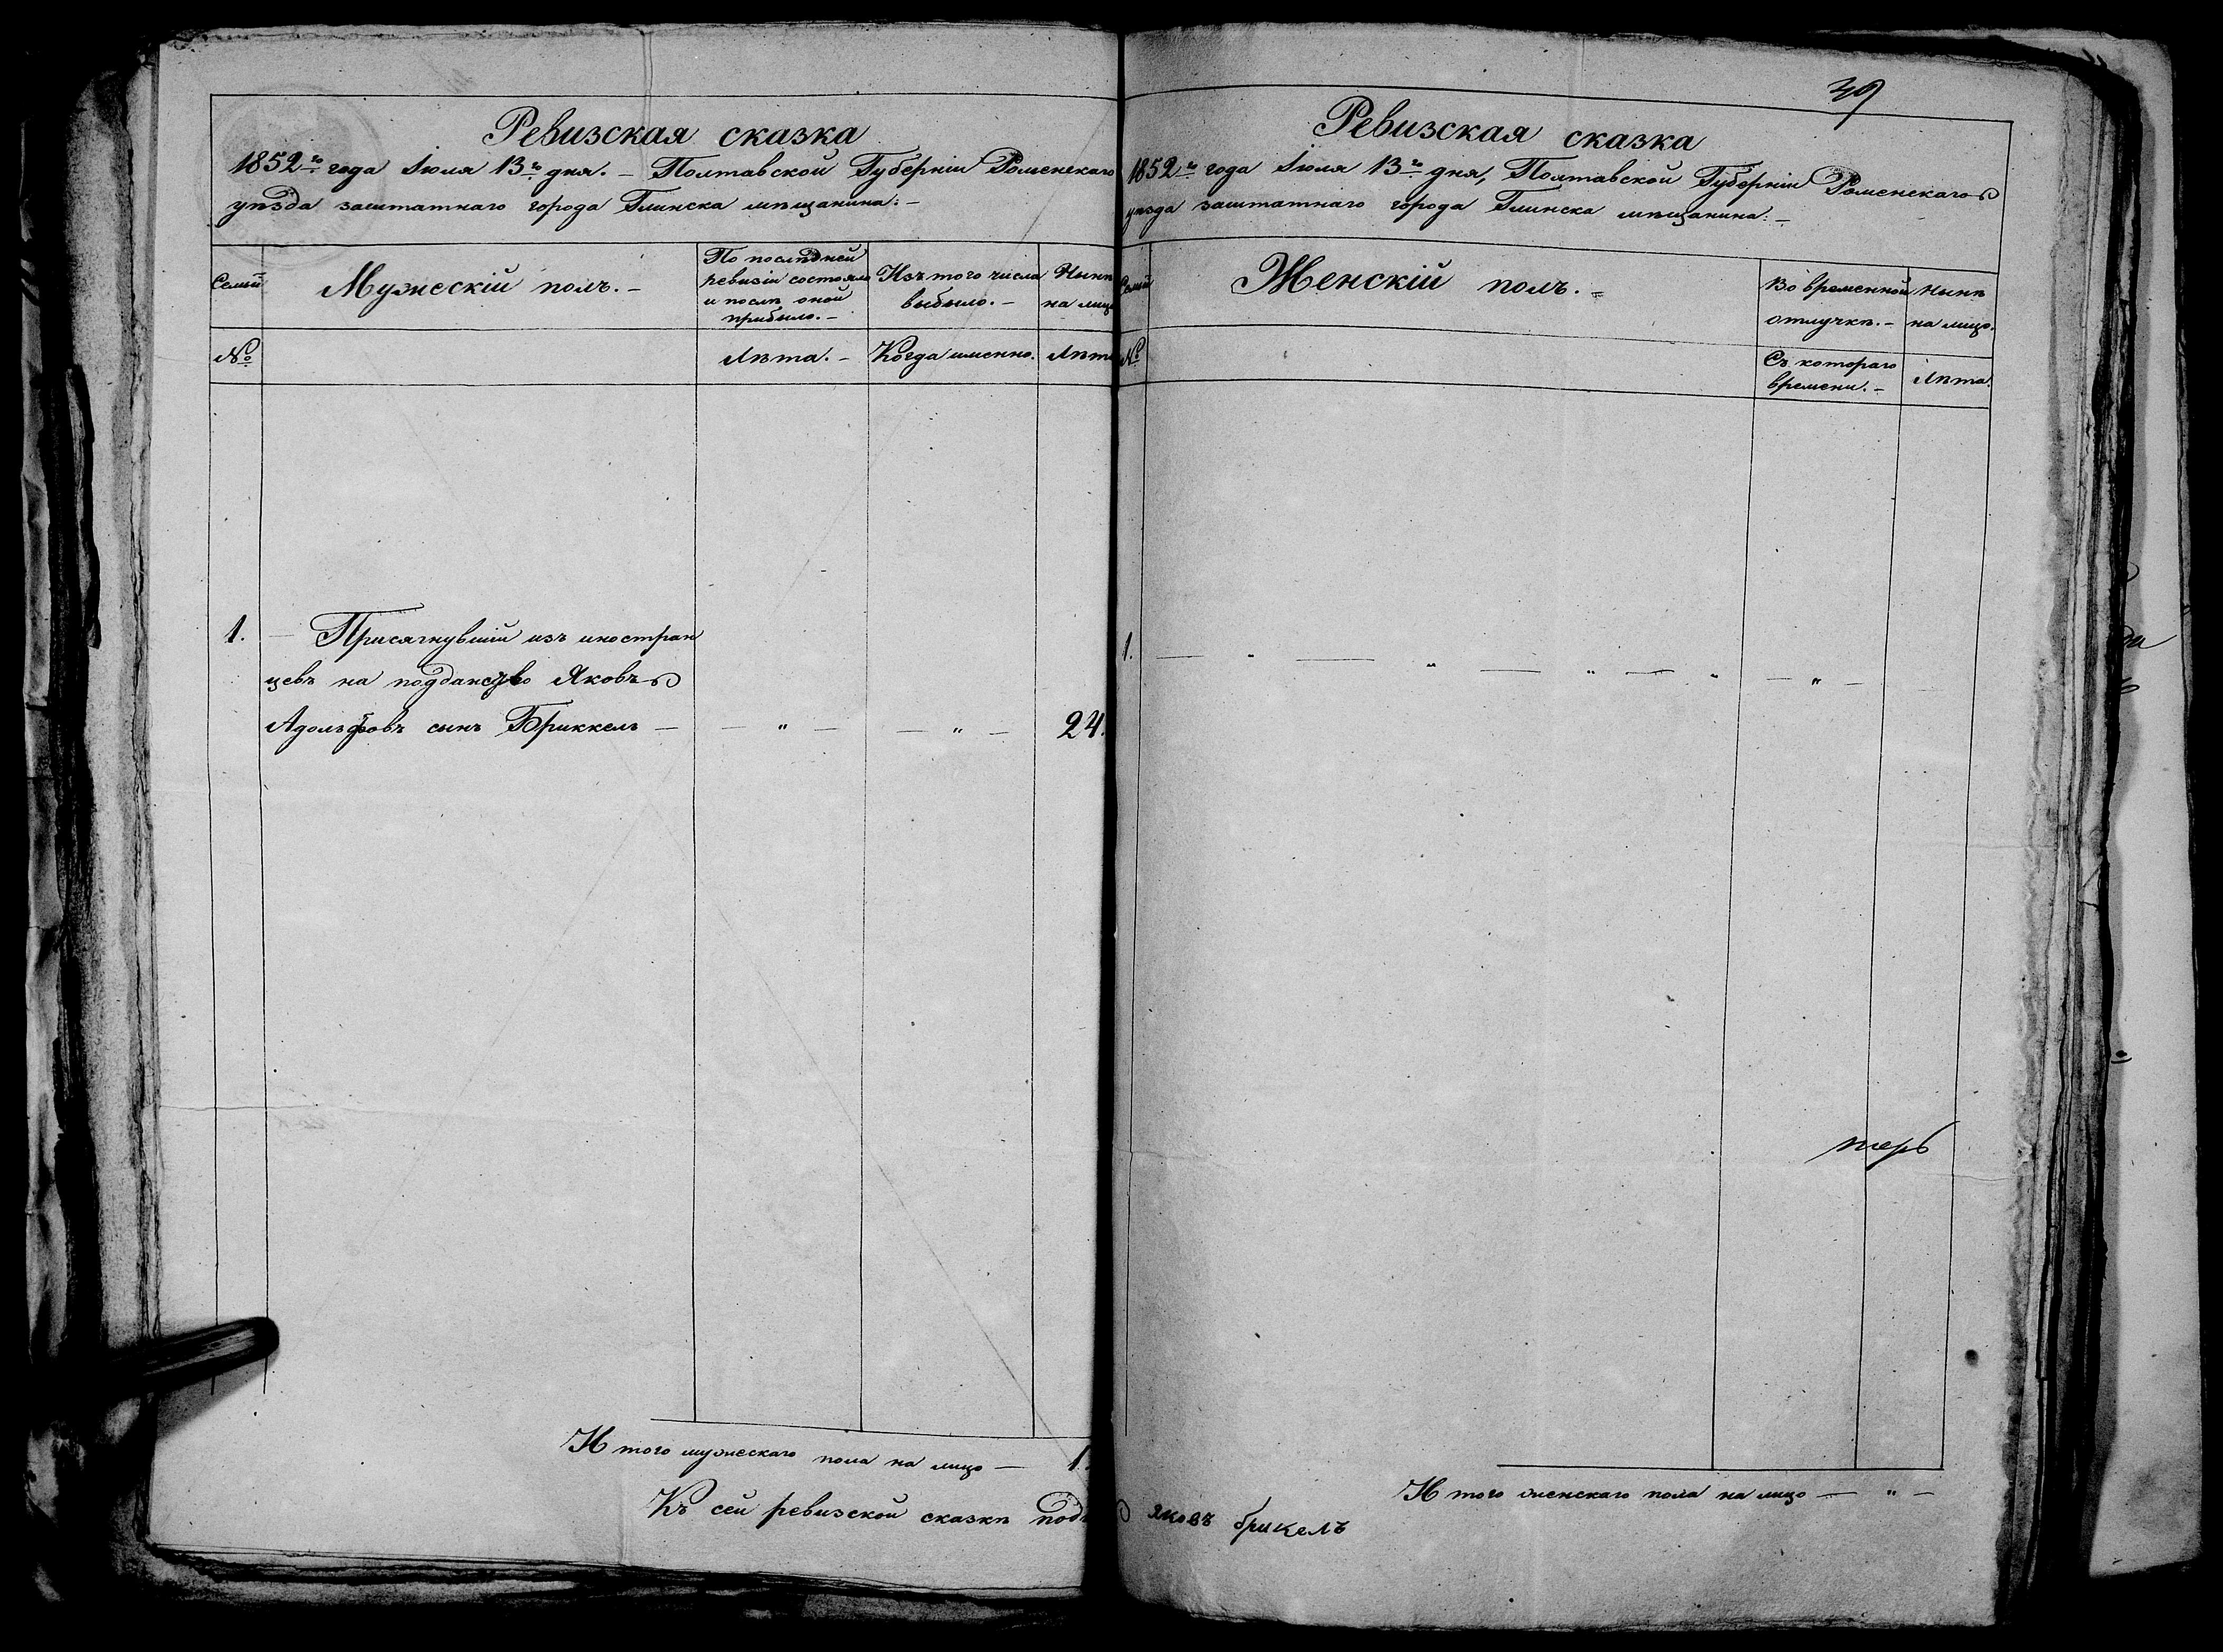 Ревизская сказка
1852го года Июля 13го дня. – Полтавской Губерніи Роменскаго
уѣзда заштатнаго города Глинска мѣщанина: –
Семьи
Мужескій полъ. –
По послѣдней
ревизіи состояло
и послѣ оной
прибыло. –
Изъ того числа
выбыло. –
Нынѣ
на лицо
№
Лѣта. –
Когда именно.
Лѣта
1. – Присягнувшій изъ иностран
цевъ на подданство Яковъ
Адольфовъ сынъ Бриккель – – " – – " – 24.
Итого мужескаго пола на лицо – 1.
Къ сей ревизской сказкѣ
39
Ревизская сказка
1852го года Июля 13го дня, Полтавской Губерніи Роменскаго
уѣзда заштатнаго города Глинска мѣщанина: –
Семьи
Женскій полъ. –
Во временной
отлучкѣ. –
Нынѣ
на лицо.
№
Съ котораго
времени. –
Лѣта.
1. — " — " — " — " — " —
Итого женскаго пола на лицо — " —
яковъ брикелъ